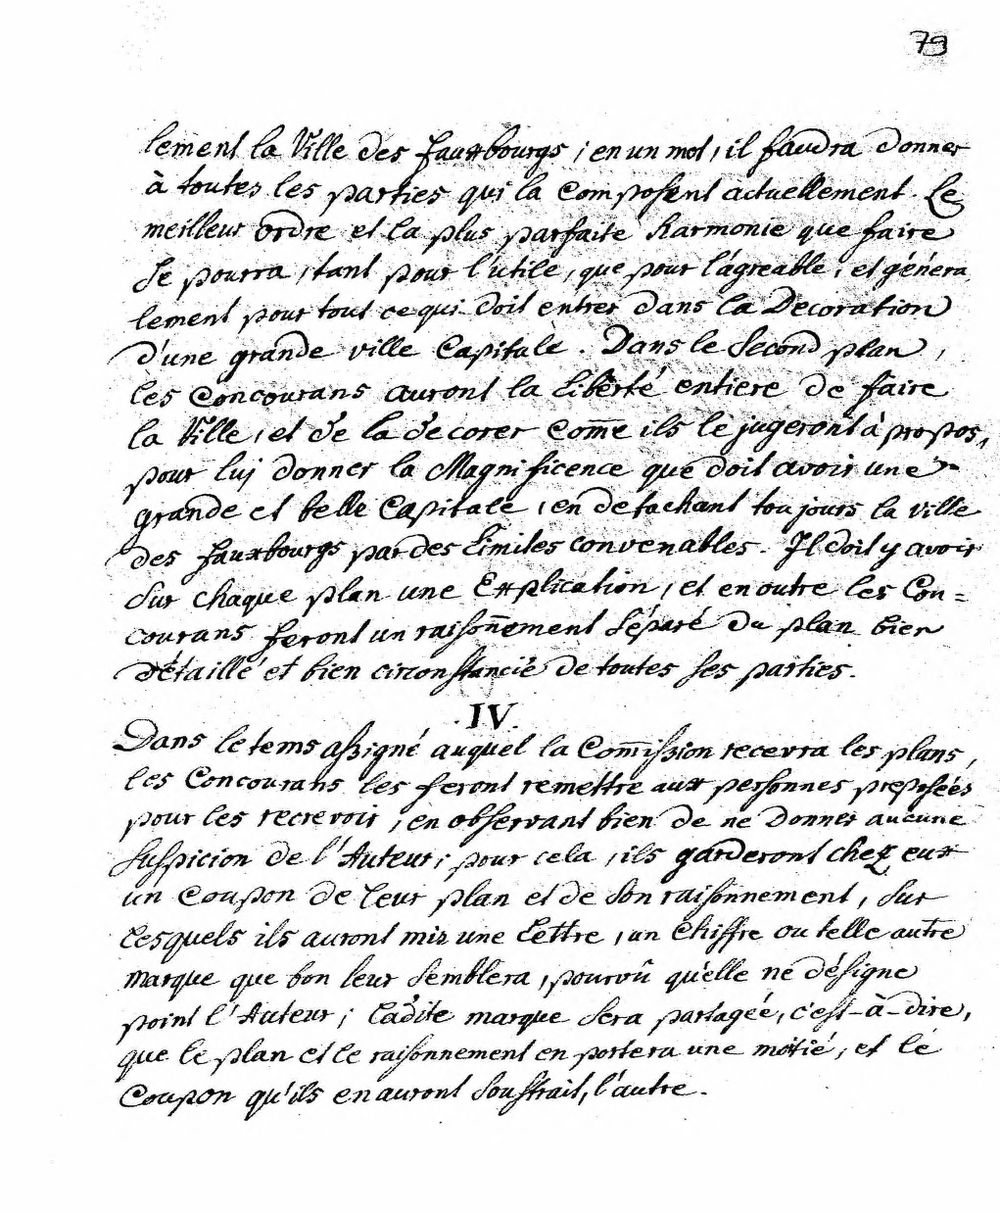 79
lement la Ville des fauxbourgs ; en un mot, il faudra donner
à toutes les parties qui la Composent actuellement Le
meilleur ordre et la plus parfaite harmonie que faire
Se pourra, tant pour l'utile, que pour l'agreable, et génera
lement pour tout ce qui doit entrer dans la Decoration
d'une grande ville Capitale. Dans le Second plan,
les Concourans auront la Liberté entiere de faire
la Ville, et de la decorer Com̄e ils le jugeront à propos,
pour luj donner la Magnificence que doit avoir une
grande et belle Capitale, en detachant toujours la ville
des fauxbourgs par des Limites convenables. Il doit y avoir
Sur chaque plan une Explication, et en outre les Con=
courans feront un raison̄ement Séparé du plan bien
détaillé et bien circonstancié de toutes ses parties.
IV.
Dans le tems assigné auquel la Com̄ission recevra les plans,
les Concourans les feront remettre aux personnes preposées
pour les recrevoir, en observant bien de ne donner aucune
Suspicion de l'Auteur; pour cela, ils garderont chez eux
un Coupon de leur plan et de Son raisonnement, Sur
Lesquels ils auront mis une Lettre, un Chiffre ou telle autre
marque que bon leur Semblera, pourvû qu'elle ne désigne
point l'Auteur; Ladite marque Sera partagée, c'est-à-dire,
que le plan et le raisonnement en portera une moitié, et le
Coupon qu'ils en auront Soustrait, l'autre.